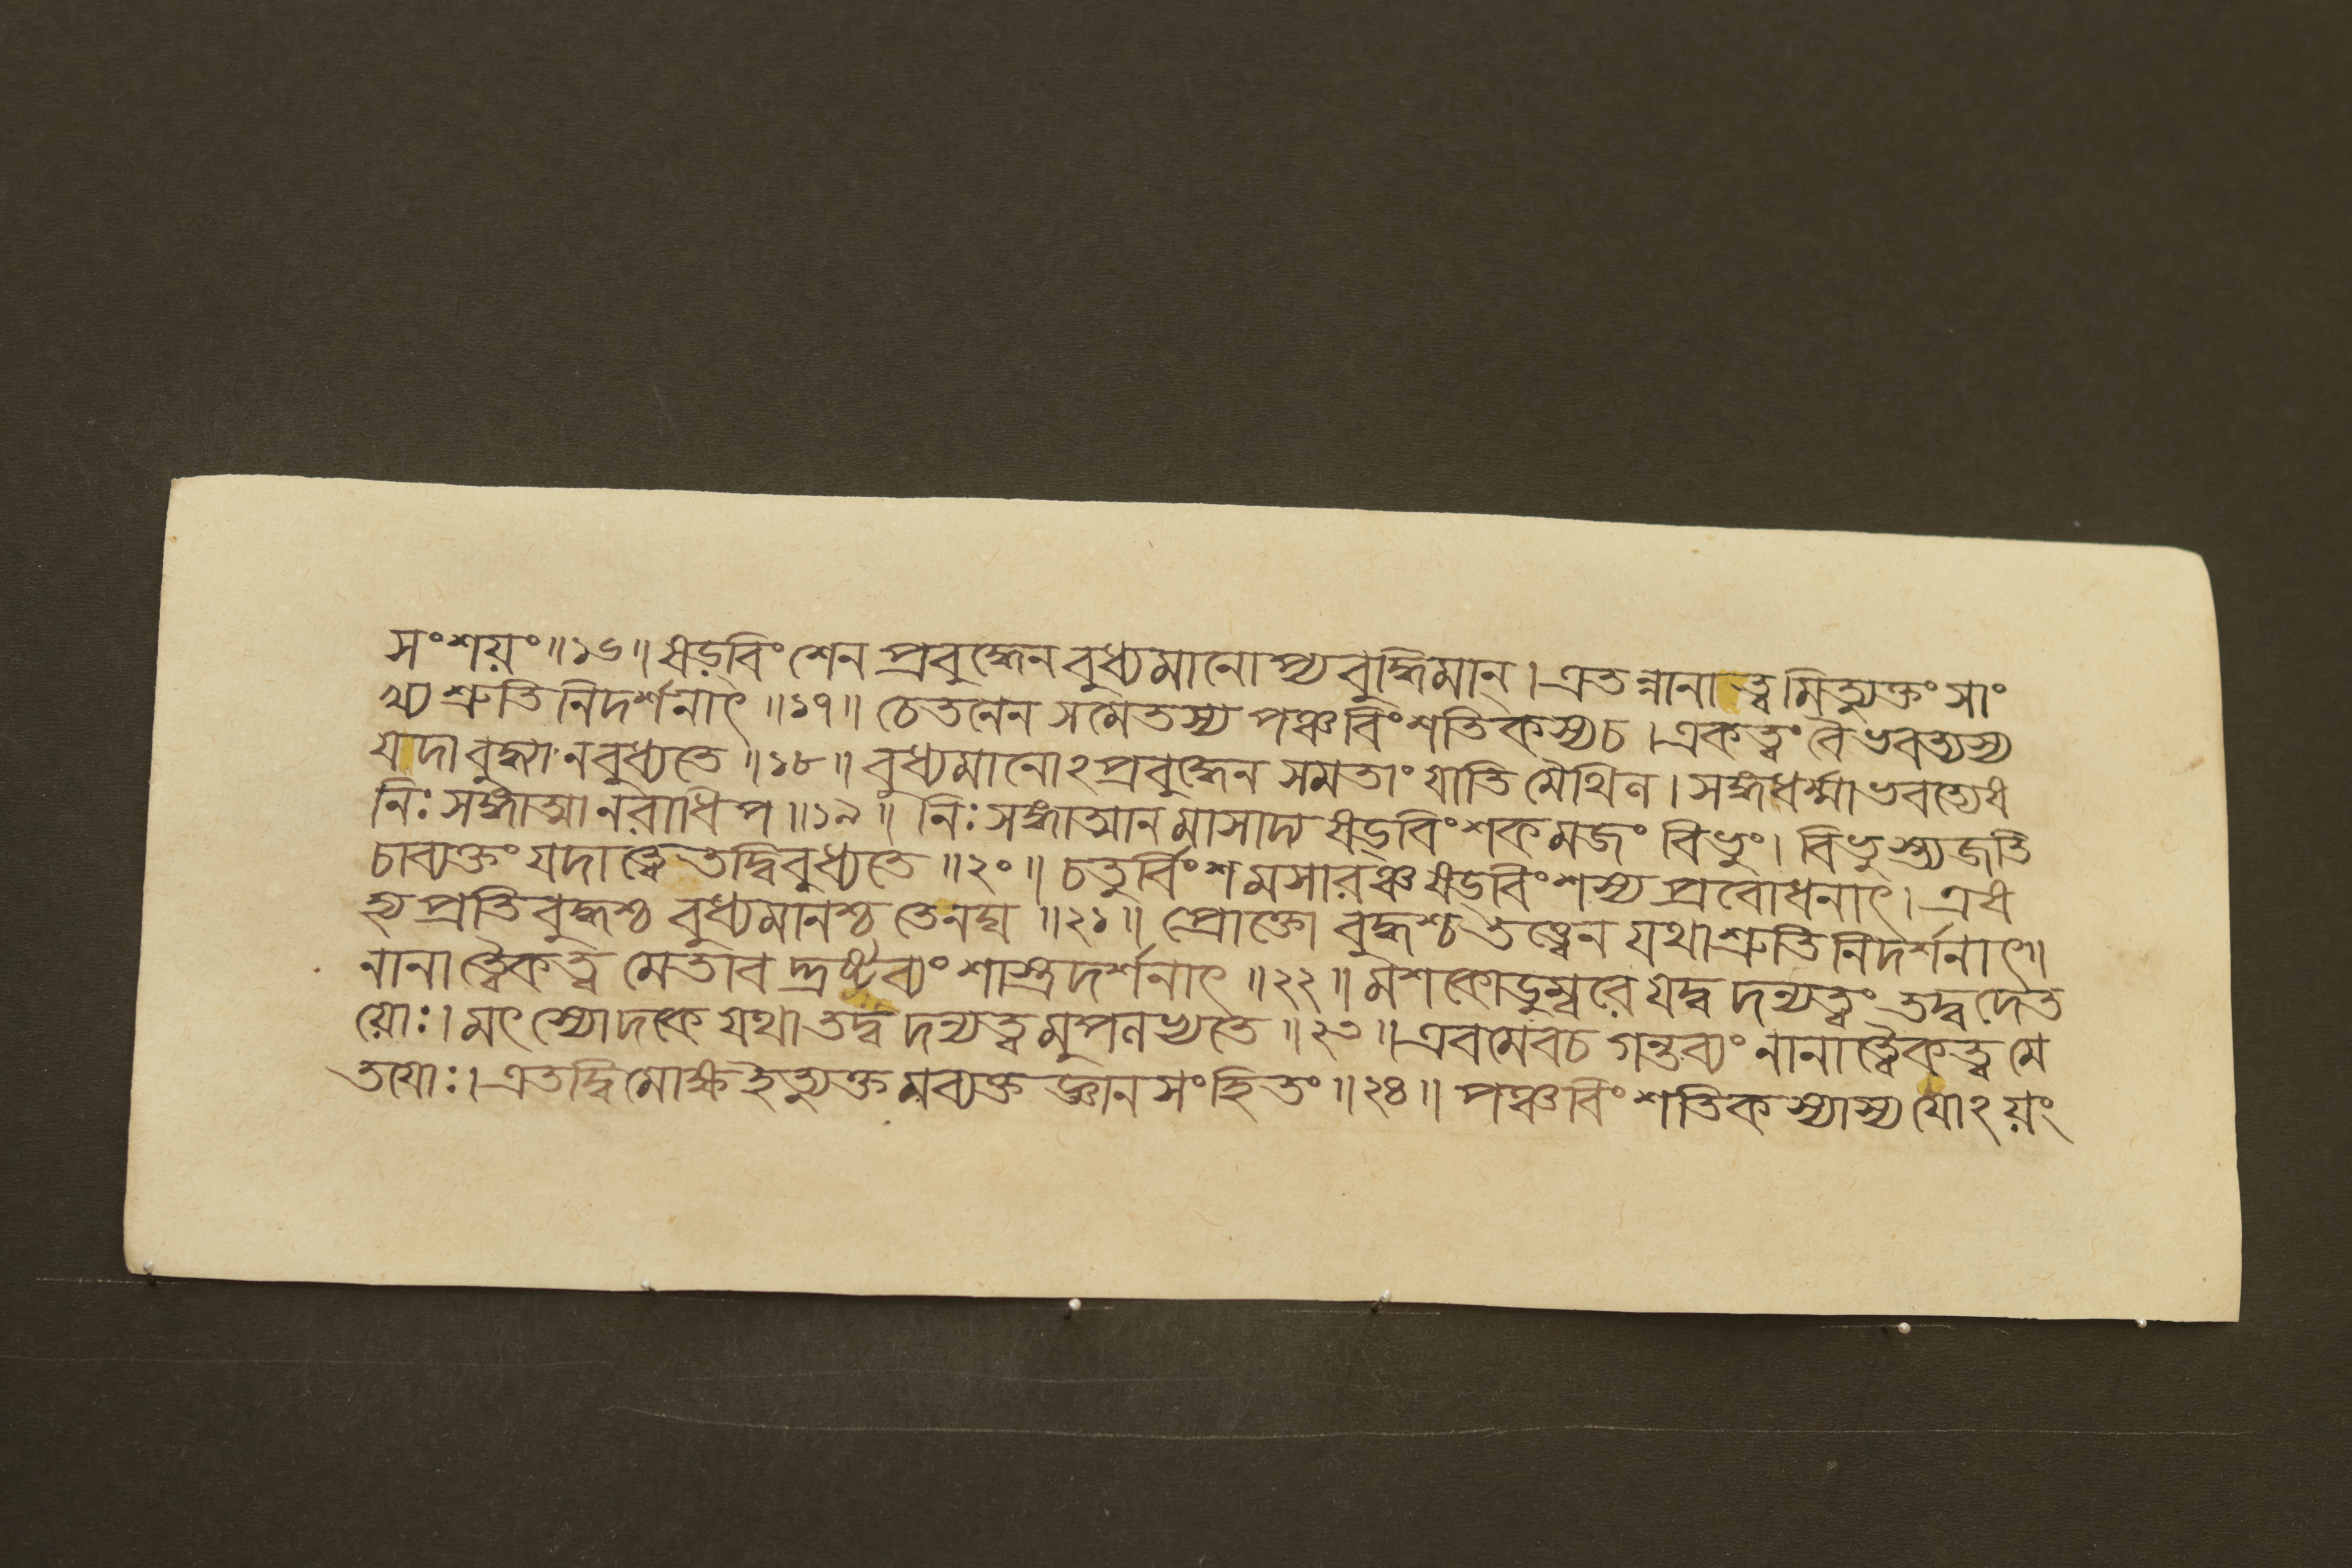 সংশয়ং॥১৬॥ ষড়্বিংশেন প্রবুদ্ধেন বুধ্যমানোপ্যবুদ্ধিমান্। এতন্নানাত্বমিত্যুক্তং সাং
খ্যশ্রুতিনিদর্শনাৎ॥১৭॥ চেতনেন সমেতস্য পঞ্চবিংশতিকস্য চ। একত্বং বৈ ভবত্যস্য
যদা বুদ্ধ্যা ন বুধ্যতে॥১৮॥ বুধ্যমানোঽপ্রবুদ্ধেন সমতাং যাতি মৈথিল। সঙ্গধর্ম্মা ভবত্যেষ
নিঃসঙ্গাত্মা নরাধিপ॥১৯॥ নিঃসঙ্গাত্মানমাসাদ্য ষড়্বিংশকমজং বিভুং। বিভুস্ত্যজতি
চাব্যক্তং যদা ত্বেতদ্বিবুধ্যতে॥২০॥ চতুর্ব্বিংশমসারঞ্চ ষড়্বিংশস্য প্রবোধনাৎ। এষ
হ্যপ্রতিবুদ্ধশ্চ বুধ্যমানশ্চ তেনঘ॥২১॥ প্রোক্তো বুদ্ধশ্চ তত্ত্বেন যথাশ্রুতিনিদর্শনাৎ॥
নানাত্বৈকত্বমেতাবদ্দ্রষ্টব্যং শাস্ত্রদর্শনাৎ॥২২॥ মশকোডুম্বরে যদ্বদন্যত্বং তদ্বদেত
য়োঃ। মৎস্যোদকে যথা তদ্বদন্যত্বমুপলভ্যতে॥২৩॥ এবমেব চ গন্তব্যং নানাত্বৈকত্বমে
তযোঃ। এতদ্বিমোক্ষ ইত্যুক্তমব্যক্তজ্ঞানসংহিতং॥২৪॥ পঞ্চবিংশতিকস্যাস্য যোঽয়ং